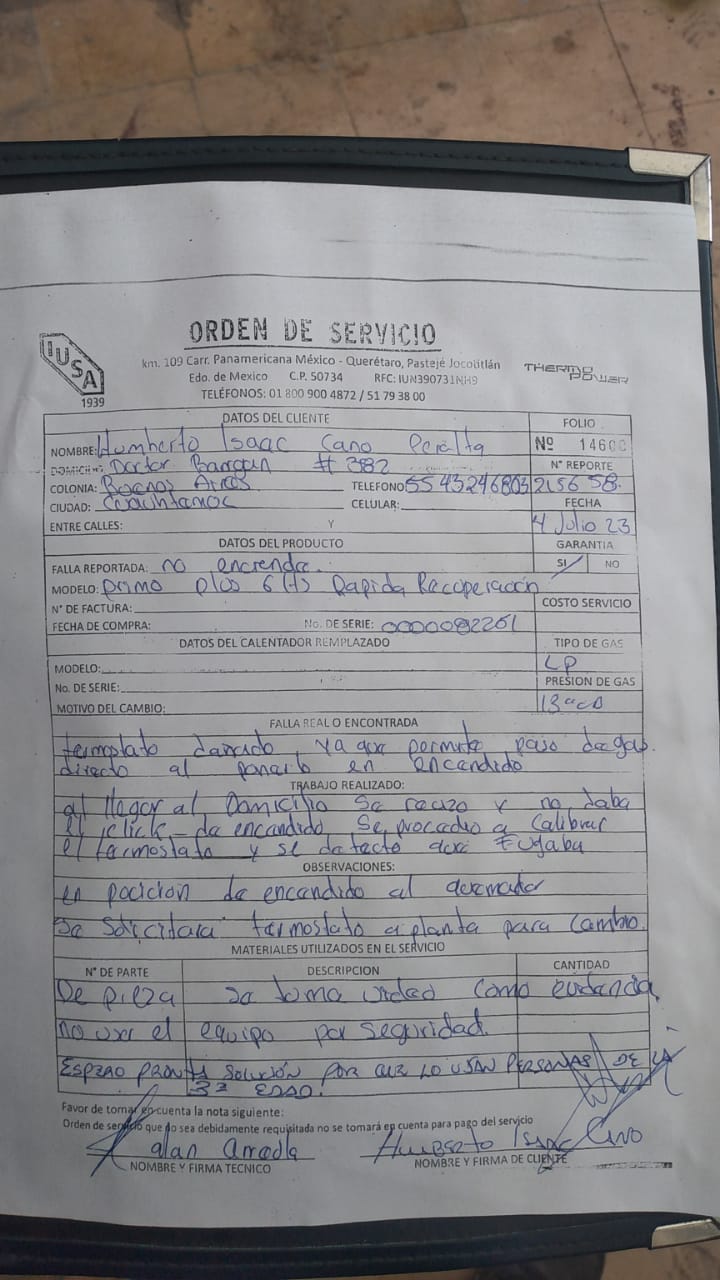 ORDEN DE SERVICIO
IUSA
1939
km. 109 Carr. Panamericana México - Querétaro, Pastejé Jocotitlán
Edo. de Mexico C.P. 50734 RFC: IUN390731NH9
TELÉFONOS: 01 800 900 4872 / 51 79 38 00
THERMO POWER
DATOS DEL CLIENTE
FOLIO
NOMBRE: Humberto Isaac Cano Peralta
Nº 1460
DOMICILIO: Doctor Barragun # 382
N° REPORTE
COLONIA: Boenos Aires TELEFONO 55 43246803 215658.
CIUDAD: Cuauhtamoc CELULAR:
FECHA
ENTRE CALLES: Y
4 Julio 23
DATOS DEL PRODUCTO
GARANTIA
FALLA REPORTADA: no encienda.
SI NO
MODELO: primo plus 6 lts Rapida Recuperación
N° DE FACTURA:
COSTO SERVICIO
FECHA DE COMPRA: No. DE SERIE: 0000082261
DATOS DEL CALENTADOR REMPLAZADO
TIPO DE GAS
MODELO:
LP
No. DE SERIE:
PRESION DE GAS
MOTIVO DEL CAMBIO:
FALLA REAL O ENCONTRADA
termostato danado, ya que permite paso de gas
directo al en encendido
TRABAJO REALIZADO:
al llegar al Domicilio Sa y no daba
el click de encandido, Se procadio a Calibrar
el termostato y se datecto que Fugaba
OBSERVACIONES:
en posicion de encandido al quemador
Sa Solicitara termostato a planta para Cambio.
MATERIALES UTILIZADOS EN EL SERVICIO
N° DE PARTE DESCRIPCION CANTIDAD
De pieza Sa toma como evidancia
no usar el equipo por Seguridad.
ESPERO PRONTA SOLUCIÓN POR QUE LO USAN PERSONAS DE LA
3ª EDAD.
Favor de tomar en cuenta la nota siguiente:
Orden de servicio que no sea debidamente requisitada no se tomará en cuenta para pago del servicio
alan HUMBERTO ISAAC CANO
NOMBRE Y FIRMA TECNICO NOMBRE Y FIRMA DE CLIENTE